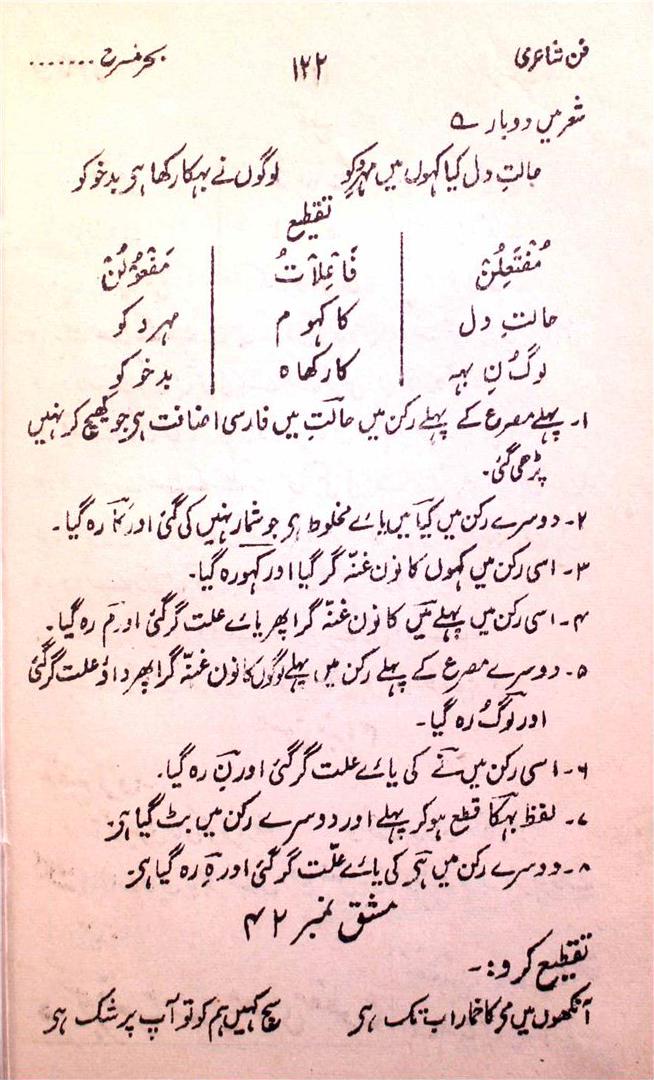 فن شاعری ۱۲۲ بحر منسرح .......
شعر میں دو بار ے
حالتِ دل کیا کہوں میں مہرو کو لوگوں نے بہکا رکھا ہی بدخو کو
تقطیع
مُفْتَعِلُنْ فَاعِلَاتُ مَفْعُوْلُنْ
حالتِ دل کا کہو م مہرو کو
لوگُ نِ بہہ کا رکھا ہ بدخو کو
۱۔ پہلے مصرع کے پہلے رکن میں حالتِ میں فارسی اضافت ہی جو کھینچ کر نہیں
پڑھی گئی۔
۲۔ دوسرے رکن میں کیا میں یائے مخلوط ہی جو شمار نہیں کی گئی اور کا رہ گیا۔
۳۔ اسی رکن میں کہوں کا نون غنّہ گر گیا اور کہو رہ گیا۔
۴۔ اسی رکن میں پہلے میں کا نون غنّہ گرا پھر یائے علت گر گئی اور م رہ گیا۔
۵۔ دوسرے مصرع کے پہلے رکن میں پہلے لوگوں کا نون غنّہ گرا پھر واؤ علت گر گئی
اور لوگُ رہ گیا۔
۶۔ اسی رکن میں نے کی یائے علت گر گئی اور نِ رہ گیا۔
۷۔ لفظ بہکا قطع ہو کر پہلے اور دوسرے رکن میں بٹ گیا ہی۔
۸۔ دوسرے رکن میں ہی کی یائے علّت گر گئی اور ہِ رہ گیا ہی۔
مشق نمبر ۴۲
تقطیع کرو :۔
آنکھوں میں مَی کا خمار اب تک ہی سچ کہیں ہم کو تو آپ پر شک ہی